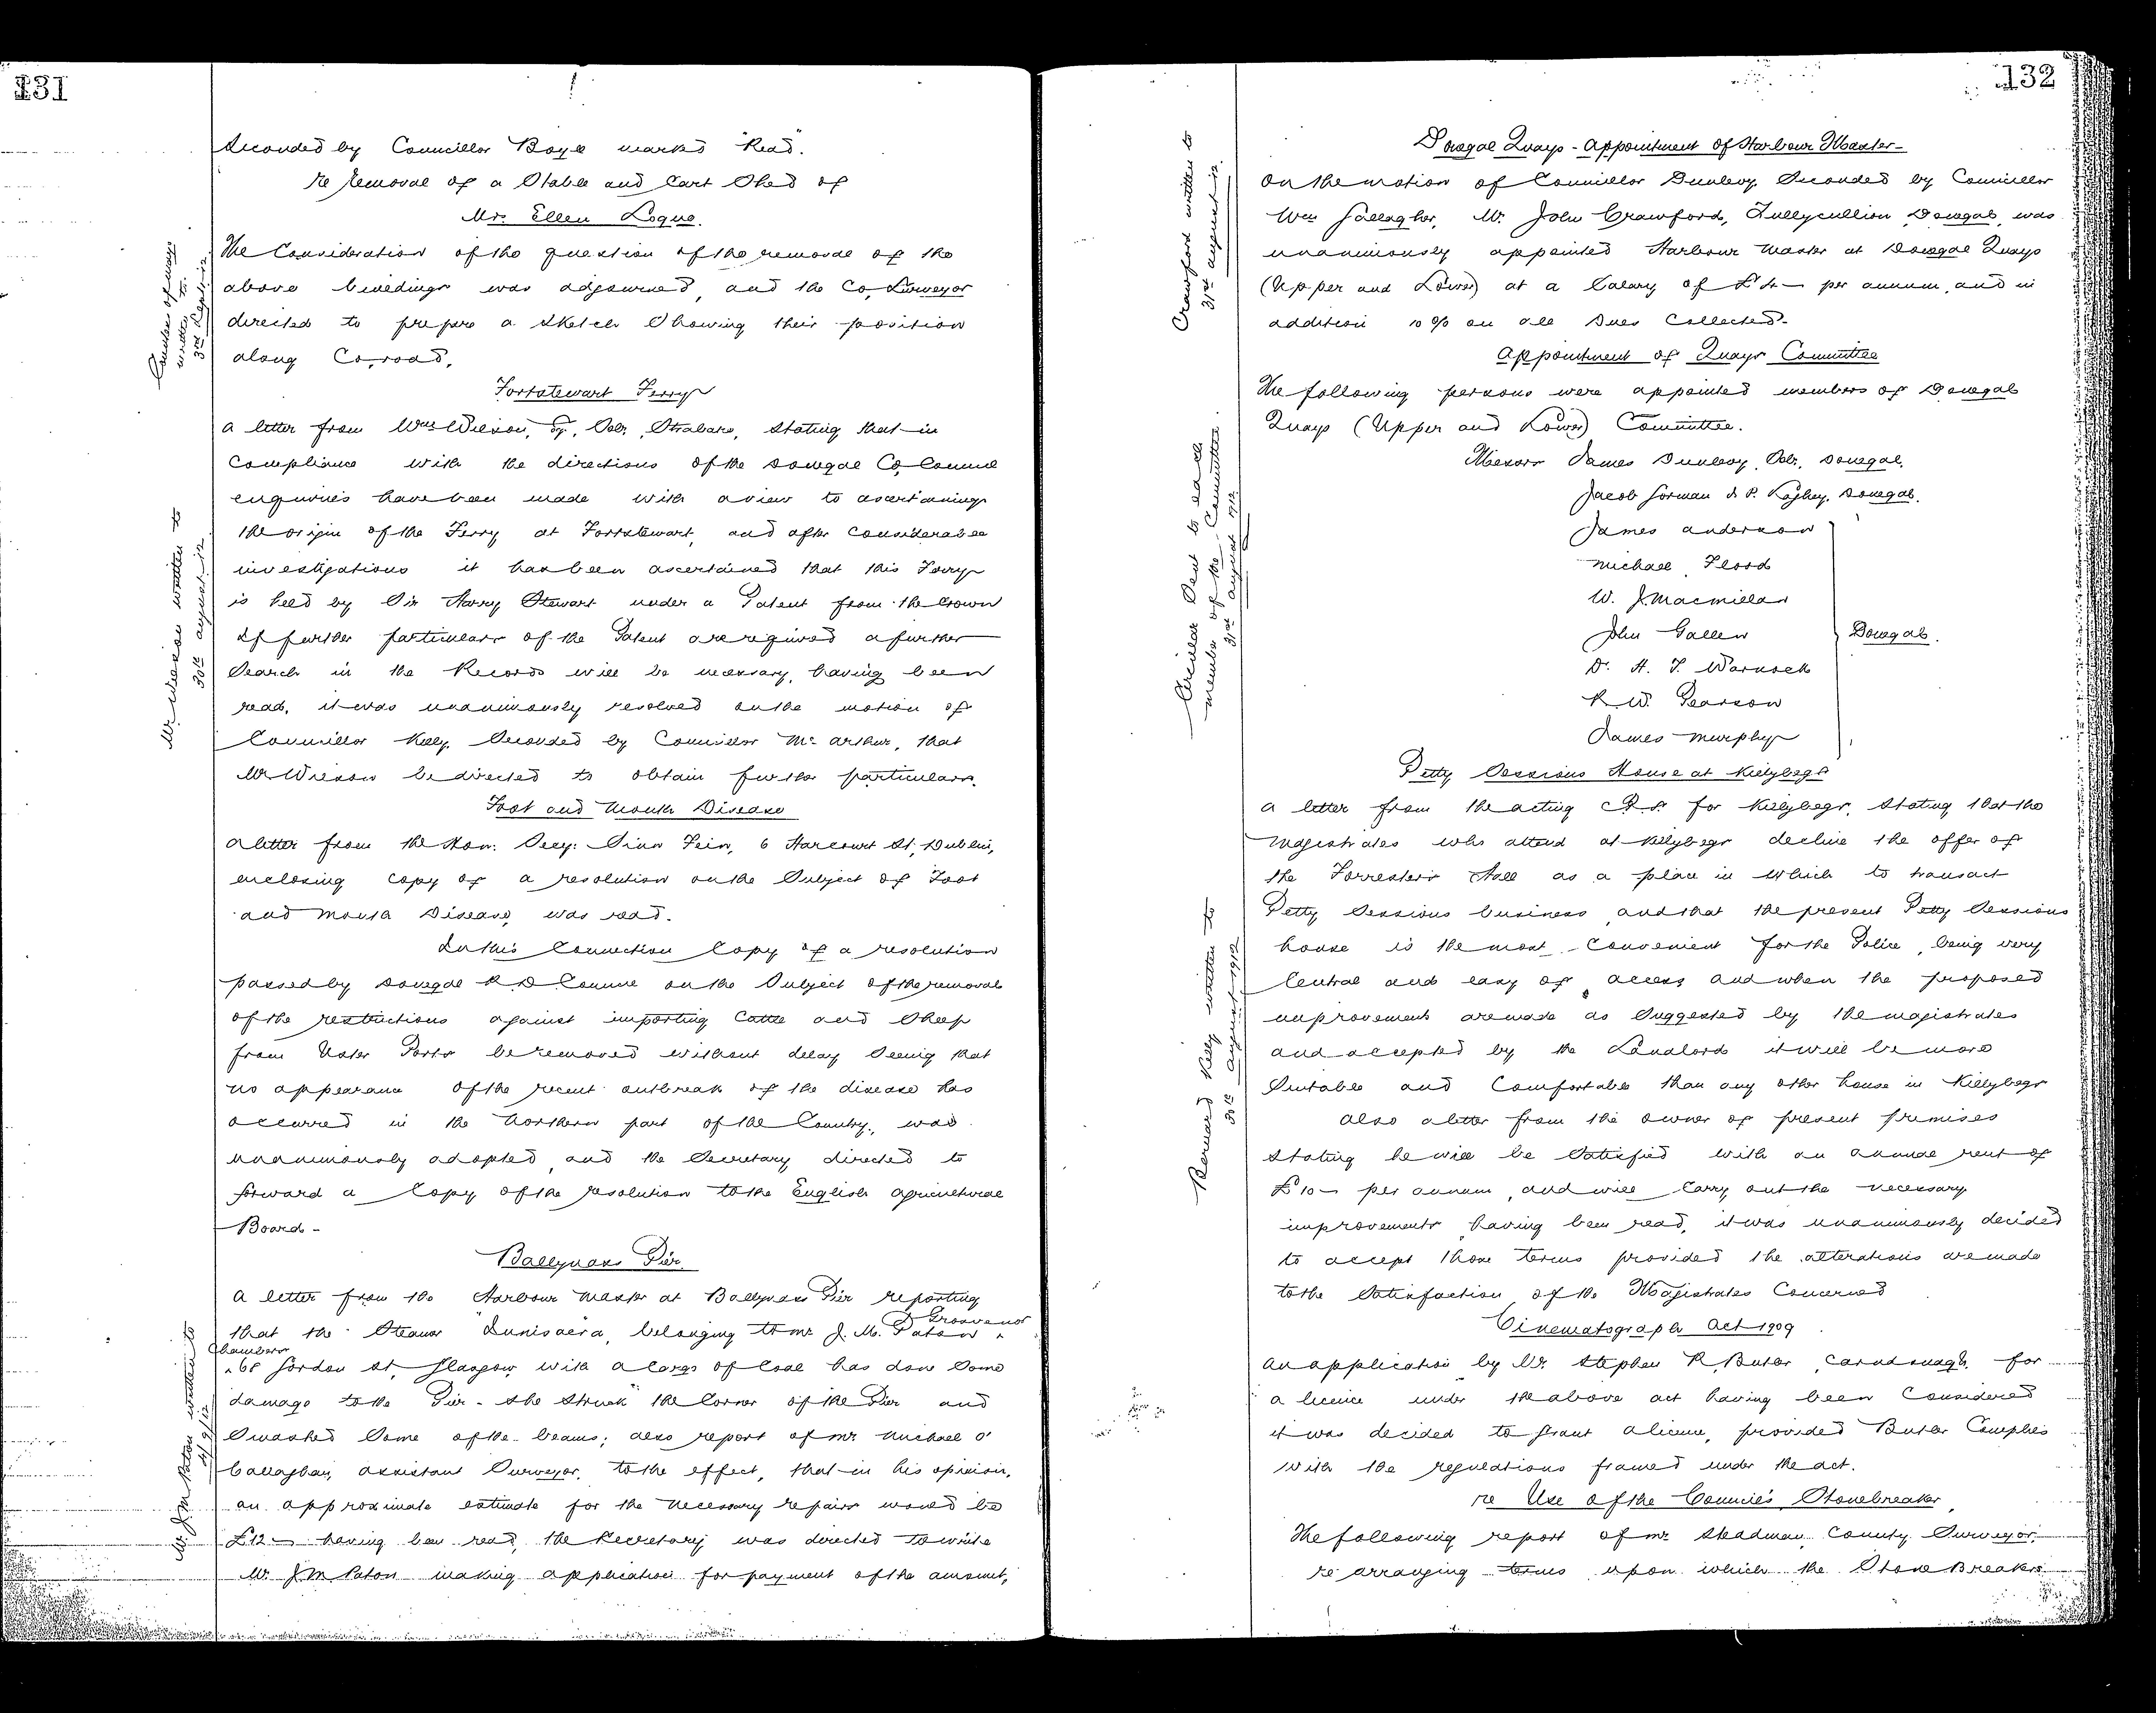 131
Seconded by Councillor Boyle marked "Read".
re removal of a Stable and Cart Shed of
Mrs. Ellen Logue.
The Consideration of the question of the removal of the
above buildings was adjourned, and the Co. Surveyor
directed to prepare a Sketch Showing their position
along Co. road.
County Surveyor written to.
3rd Sept. 12.
Fortstewart Ferry
A letter from Wm Wilson, Esq., Solr., Strabane, Stating that in
Compliance with the directions of the Donegal Co. Council
enquiries have been made with a view to ascertaining
the origin of the Ferry at Fortstewart, and after Considerable
investigations it has been ascertained that this Ferry
is held by Sir Harry Stewart under a Patent from the Crown
If further particulars of the Patent are required a further
Search in the Records will be necessary, having been
read, it was unanimously resolved on the motion of
Councillor Kelly, Seconded by Councillor McArthur, that
Mr Wilson be directed to obtain further particulars.
Mr Wilson written to
30th August. 12.
Foot and Mouth Disease
A letter from the Hon. Secy: Sinn Fein, 6 Harcourt St, Dublin,
enclosing copy of a resolution on the Subject of Foot
and Mouth Disease, was read.
In this Connection Copy of a resolution
passed by Donegal R.D Council on the Subject of the removal
of the restrictions against importing Cattle and Sheep
from Ulster Ports be removed without delay Seeing that
no appearance of the recent outbreak of the disease has
occurred in the Northern part of the Country, was
unanimously adopted, and the Secretary directed to
forward a Copy of the resolution to the English Agricultural
Board -
Ballyness Pier.
A letter from the Harbour Master at Ballyness Pier reporting
that the Steamer "Dunisaera, belonging to Mr J. M. Paton, Grosvenor
Chambers
68 Gordon St, Glasgow, with a Cargo of Coal has done Some
damage to the Pier - She Struck the Corner of the Pier and
Smashed Some of the beams; also report of Mr Michael O'
Callaghan, Assistant Surveyor, to the effect, that in his opinion,
an approximate estimate for the necessary repairs would be
£12 - having been read, the Secretary was directed to write
Mr J M Paton making application for payment of the amount,
Mr. J. M Paton written to
4/9/12
132
Donegal Quays - Appointment of Harbour Master -
On the motion of Councillor Dunlevy, Seconded by Councillor
Wm Gallagher, Mr. John Crawford, Tullycullion, Donegal, was
unanimously appointed Harbour Master at Donegal Quays
(Upper and Lower) at a Salary of £4 - per annum, and in
addition 10% on all Dues Collected -
Crawford written to
31st August. 12.
Appointment of Quays Committee
The following persons were appointed members of Donegal
Quays (Upper and Lower) Committee.
Messrs James Dunlevy, Solr, Donegal.
Jacob Gorman J. P. Laghey, Donegal.
James Anderson
Michael Flood
W. J. Macmillan
John Gallen
Donegal.
Dr. H. T. Warnock
R. W. Pearson
James Murphy
Circular Sent to each
member of the Committee.
31st August 1912
Petty Sessions House at Killybegs
A letter from the acting C.P.S. for Killybegs, Stating that the
Magistrates who attend at Killybegs decline the offer of
the Forresters Hall as a place in which to transact
Petty Sessions business, and that the present Petty Sessions
house is the most Convenient for the Police, being very
Central and easy of access and when the proposed
improvements are made as Suggested by the magistrates
and accepted by the Landlord it will be more
Suitable and Comfortable than any other house in Killybegs
Also a letter from the owner of present premises
Stating he will be Satisfied with an annual rent of
£10 - per annum, and will Carry out the necessary
improvements having been read, it was unanimously decided
to accept those terms provided the alterations are made
to the Satisfaction of the Magistrates Concerned
Bernard Kelly written to
30th August 1912
Cinematograph Act 1909
An application by Mr. Stephen R. Butler, Carndonagh, for
a licence under the above Act having been Considered
it was decided to grant a licence, provided Butler Complies
with the regulations framed under the Act.
re Use of the Council's Stonebreaker
The following report of Mr Steadman, County Surveyor,
re arranging terms upon which the Stone Breaker